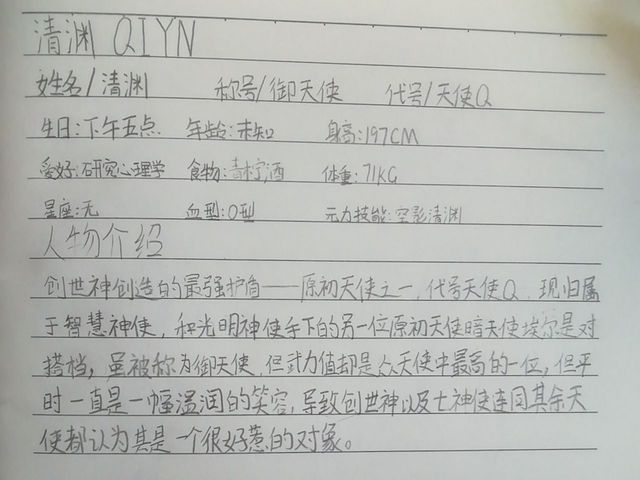 清渊 QIYN
姓名/清渊 称号/御天使 代号/天使Q
生日:下午五点 年龄:未知 身高:197CM
爱好:研究心理学 食物:青柠酒 体重:71KG
星座:无 血型:O型 元力技能:空影清渊
人物介绍
创世神创造的最强护盾——原初天使之一,代号天使Q,现归属
于智慧神使,和光明神使手下的另一位原初天使暗天使埃尔是对
搭档,虽被称为御天使,但武力值却是众天使中最高的一位,但平
时一直是一幅温润的笑容,导致创世神以及七神使连同其余天
使都认为其是一个很好惹的对象。